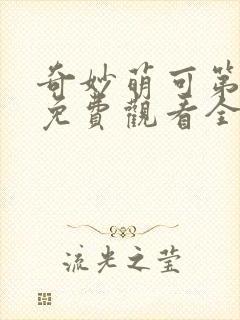 奇妙萌可第
免費觀看全
流光之莹